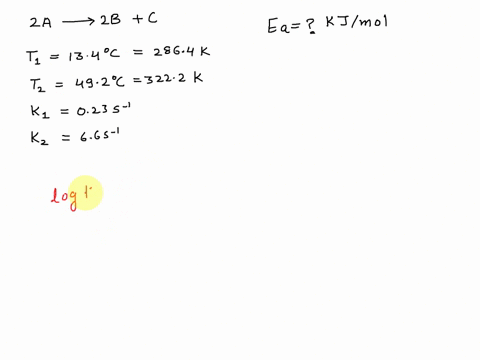 2A ⟶ 2B + C
Ea = ? KJ/mol
T₁ = 13.4°C = 286.4 K
T₂ = 49.2°C = 322.2 K
K₁ = 0.23 s⁻¹
K₂ = 6.6 s⁻¹
log